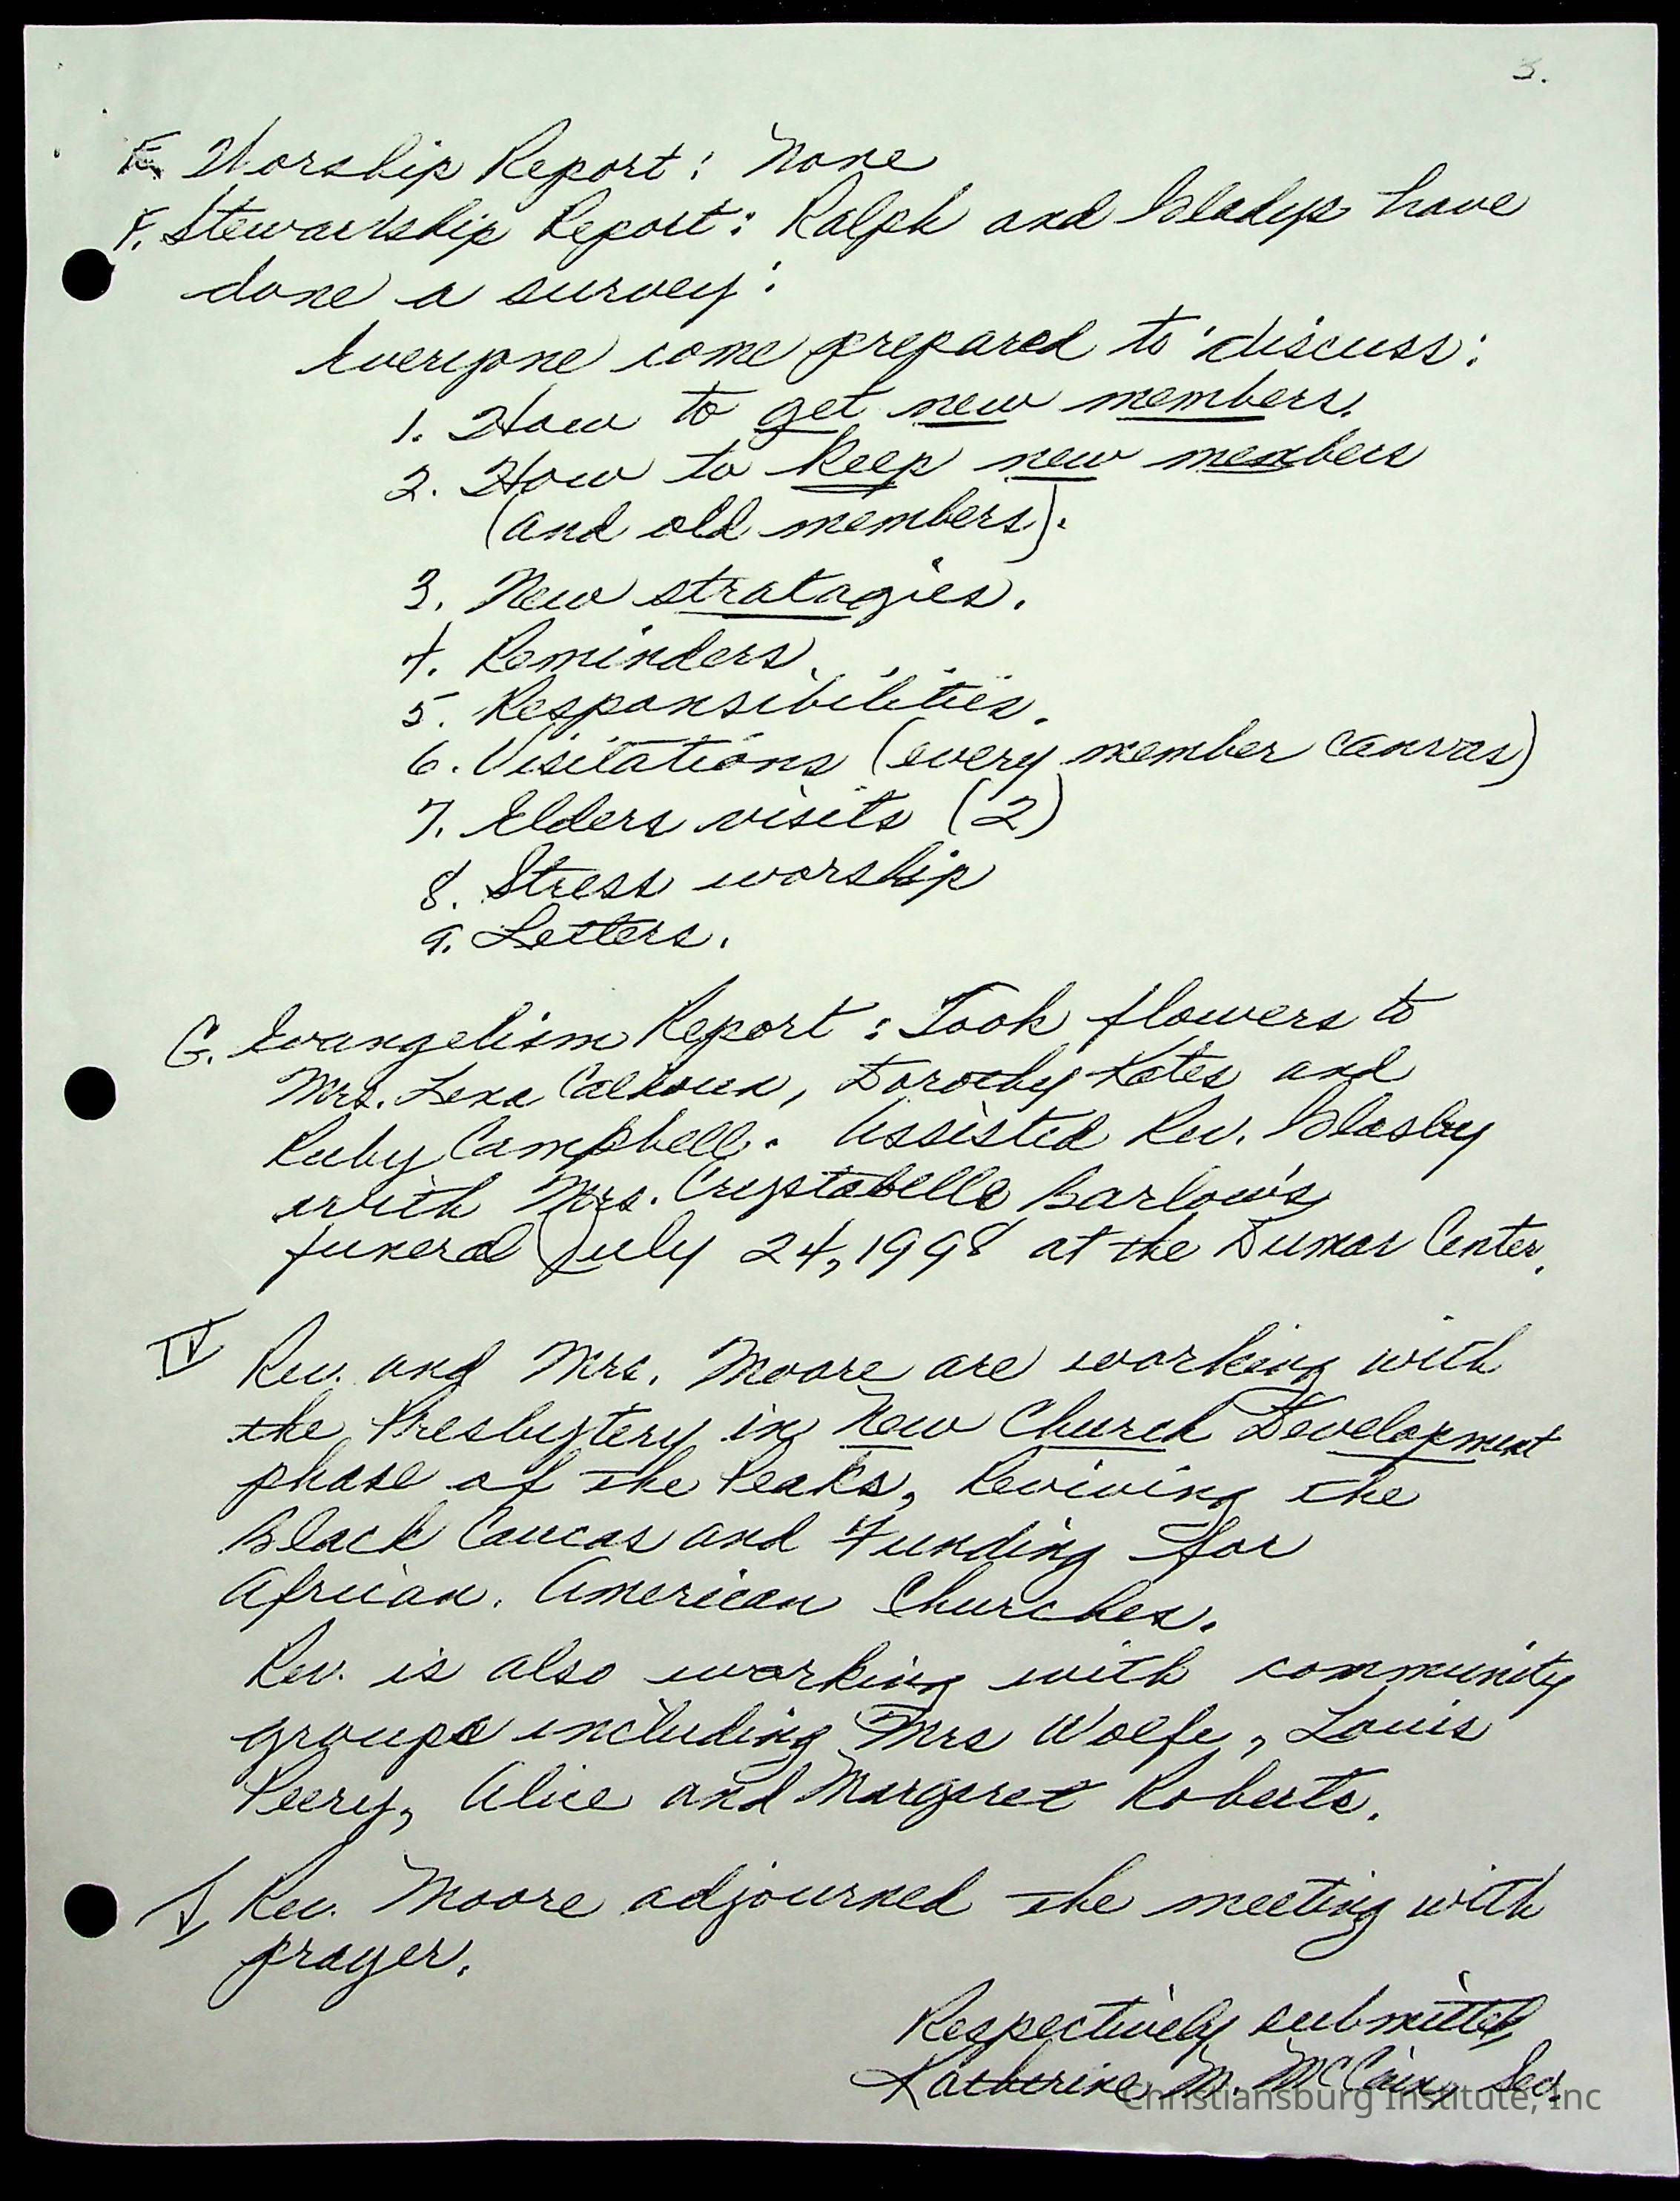 3.
E. Worship Report: None
F. Stewardship Report: Ralph and Gladys have
done a survey:
Everyone come prepared to discuss:
1. How to get new members.
2. How to keep new members
(and old members).
3. New stratagies.
4. Reminders.
5. Responsibilities.
6. Visitations (every member canvas)
7. Elders visits (2)
8. Stress worship
9. Letters.
G. Evangelism Report: Took flowers to
Mrs. Lena Calhoun, Dorothy Kates and
Ruby Campbell. Assisted Rev. Glasby
with Mrs. Crystabelle Barlow's
funeral July 24, 1998 at the Dumas Center.
IV Rev. and Mrs. Moore are working with
the Presbytery in New Church Development
phase of the Peaks, Reviving the
Black Caucas and Funding for
African. American Churches.
Rev. is also working with community
groups including Mrs Wolfe, Louis
Peery, Alice and Margaret Roberts.
V Rev. Moore adjourned the meeting with
prayer.
Respectively submitted,
Katherine M. McCain, Sec.
Christiansburg Institute, Inc